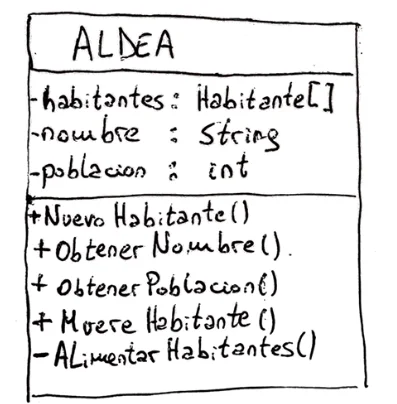 ALDEA
-habitantes: Habitante[]
-nombre : String
-poblacion : int
+Nuevo Habitante()
+Obtener Nombre().
+ Obtener Poblacion()
+ Muere Habitante()
- ALimentar Habitantes()